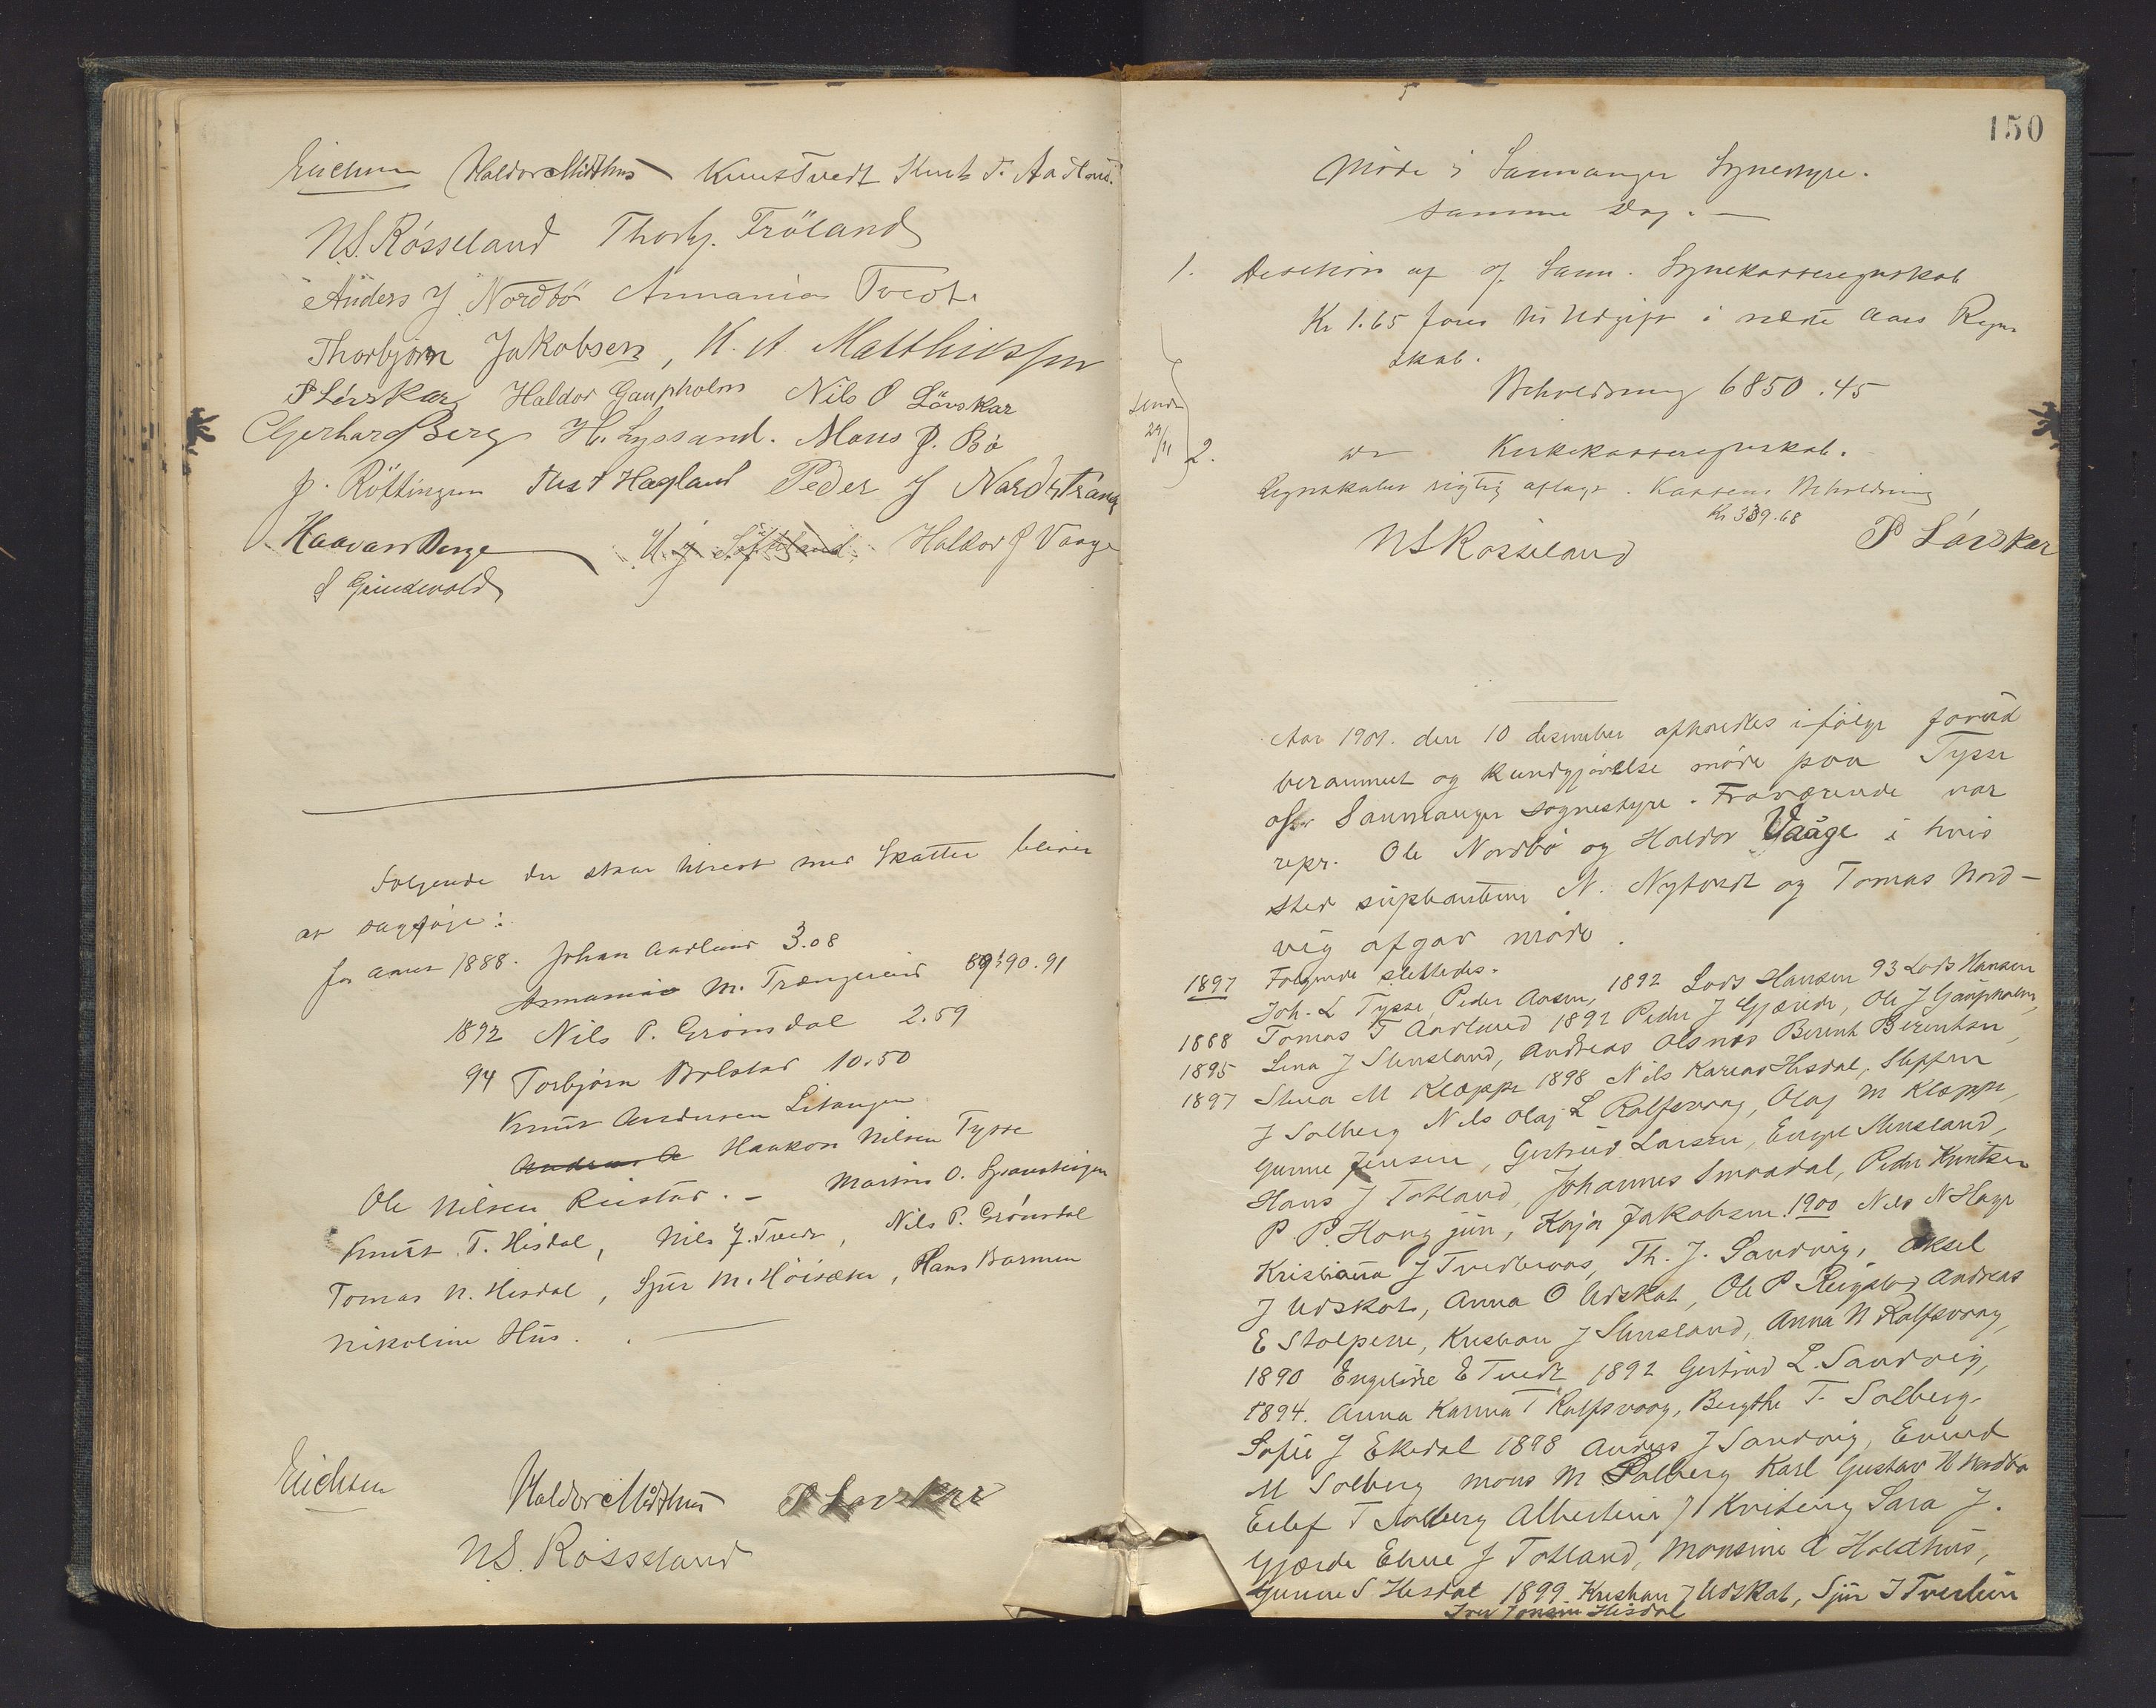 Erichsen Haldor Midthus Knut Tvedt Knut T. Aadland.
N.S. Røsseland Thorbj. Fröland
Anders J Nordbö Annanias Tvedt.
Thorbjørn Jakobsen, K. A. Matthiessen
P Løvskar Haldor Gaupholm Nils O Lövskar
Gerhard Berg H. Lyssand. Mons P. Bø
J. Röttingen Hagland Peder J Nordstrand
Haavar Berge Haldor J Vaage
S Grindevold
Følgende der staar til rest med Skatter bliver
at
for aaret 1888. Johan Aadland 3.08
Annanias M. Trængereid 89 90.91
1892 Nils P. Grønsdal 2.59
94 Torbjørn Bolstad 10.50
Knut Andersen
Andreas A Haukon Nilsen Tysse
Ole Nilsen Reistad. - Martin O.
Knut T. Hisdal, Nils J. Tvedt, Nils P. Grønsdal
Tomas N. Hisdal, Sjur M. Höisæter, Hans Barmen
Nikoline Hus.
Erichsen Haldor Midthus P Løvskar
N.S. Røsseland
150
Møde i Samnanger Sognestyre.
samme Dag. —
1. Decision af Samn. Sognekasseregnskab
Kr 1.65 føres til Udgift i næste Aars Regn
skab.
Beholdning 6850.45
Sendt
29/11
2. Kirkekasseregnskab.
Regnskabet rigtig aflagt. Kassens Beholdning
Kr 339.68
N S Røsseland P Løvskar
Aar 1901. den 10 desember afholdtes ifølge forud
berammet og kundgjørelse møde paa Tysse
af Samnanger sognestyre. Fraværende var
repr. Ole Nordbø og Haldor Vaage i hvis
sted supleanterne N. Nytvedt og Tomas Nord-
vig afgav møde.
1897 Følgende slettedes.
Joh. L Tysse, Peder Aasen, 1892 Lars Hansen 93 Lars Hansen
1888 Tomas T Aadland 1892 Peder J Gjærde, Ole J Gaupholm,
1895 Lina J Stensland, Andreas Olsnes Berent Berentsen,
1897 Stina M Kleppe 1898 Nils Hisdal, Steffen
J Solberg Nils Olaj L Rolfsvaag, Olaj M Kleppe,
Gunne Jensen, Gertrud Larsen, Stensland,
Hans J Totland, Johannes Smaadal, Peder Knutsen
P. P. Haug jun, Kaja Jakobsen. 1900 Nils N Hage
Kristiana J Tvedteraas, Th. J. Sandvig, Aksel
J Udskot, Anna O Udskot, Ole P Reigstad, Andreas
E Stolpene, Kristian J Stensland, Anna N Rolfsvaag,
1890 Engeline E Tvedt 1892 Gertrud L. Sandvig,
1894. Anna Karina T Rolfsvaag, Berythe T. Solberg.
Sofie J Ekedal 1898 Anders J Sandvig, Eivind
M Solberg Mons M Solberg Karl Gustav H Nordbø
Eilef T Solberg Albertine J Kviteng Sara J.
Gjærde Eline J Totland, Monsine A Holdhus,
Gunne S Hisdal 1899 Kristian J Udskot, Sjur J Tverlien
Iver Jonsen Hisdal